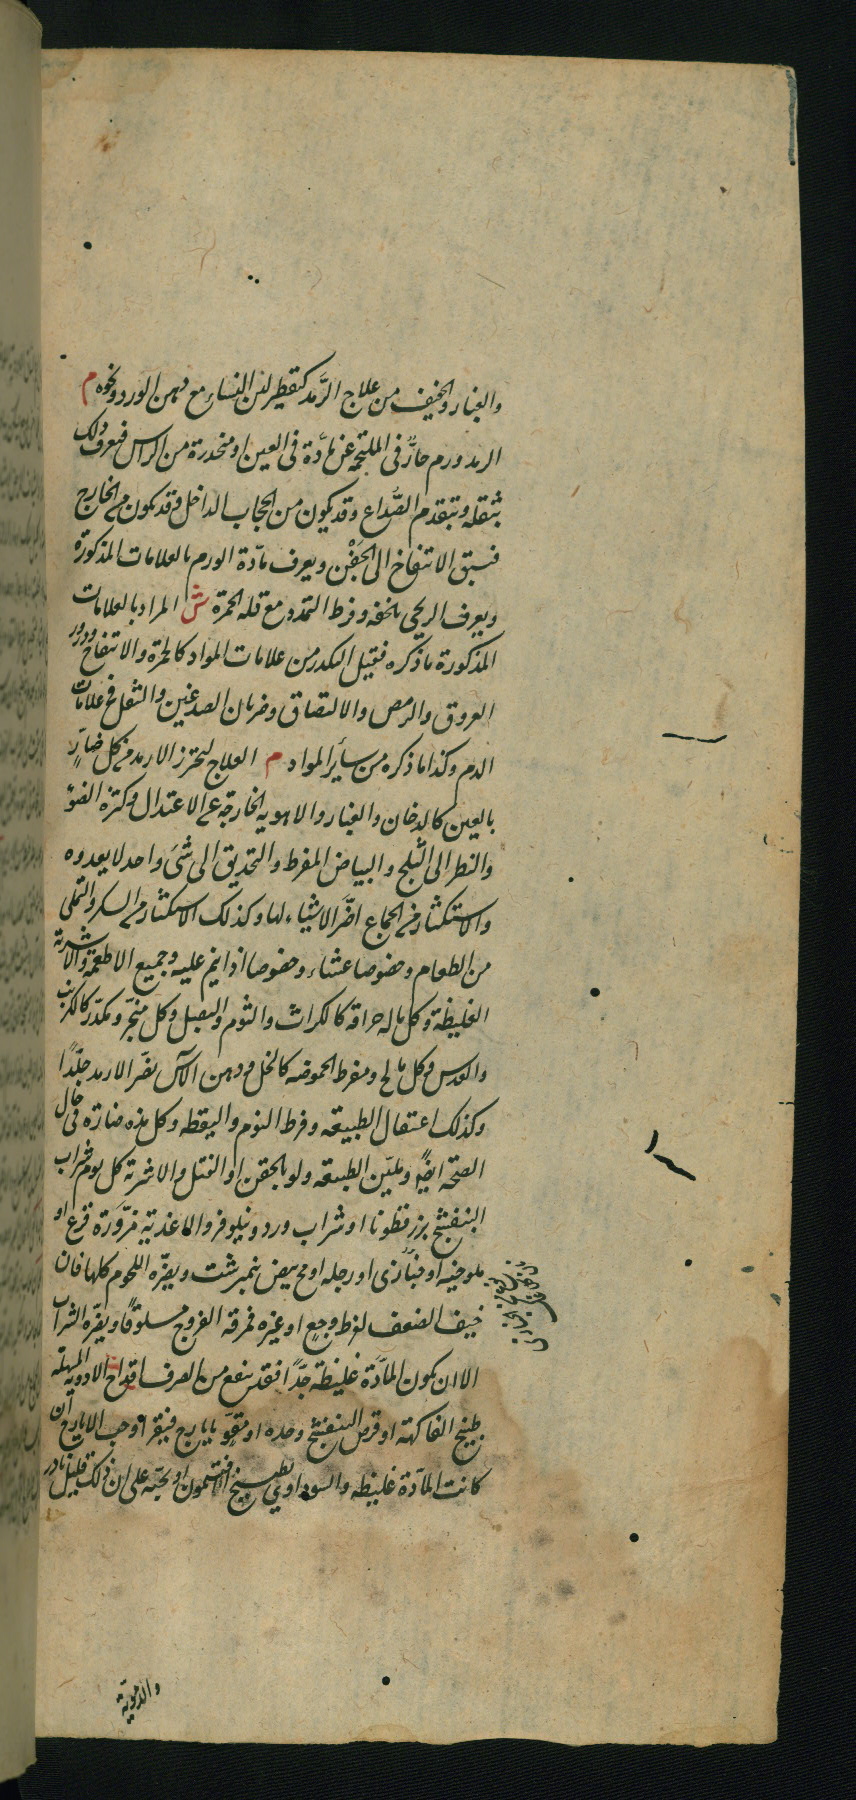 والغبار والخفيف من علاج الرمد كتقطير لبن النساء مع دهن الورد ونحوه م
الرمد ورم حار فى الملتحمة عن مادة فى العين او منحدرة من الراس فيعرف ذلك
بثقله وتبقدم الصداع وقد يكون من الحجاب الداخل وقد يكون من الخارج
فسبق الانتفاخ الى الجفن ويعرف مادة الورم بالعلامات المذكورة
ويعرف الريحى بخفه وفرط التمدد مع قلة الحمرة ش المراد بالعلامات
المذكورة ما ذكره فقيل التكدر من علامات المواد كالحمرة والانتفاخ ودرور
العروق والرمص والالتصاق وضربان الصدغين والثقل فى علامات
الدم وكذا ما ذكره من سائر المواد م العلاج ليحترز الارمد من كل ضار
بالعين كالدخان والغبار والاهويه الخارجة عن الاعتدال وكثرة الضوء
والنظر الى الثلج والبياض المفرط والتحديق الى شئ واحد لا يعدوه
والاستكثار من الجماع اضر الاشياء لها وكذلك الاستكثار من السكر والتملى
من الطعام وخصوصا عشاء وخصوصا اذا نيم عليه وجميع الاطعمة والاشربة
الغليظة وكل ما له حرافة كالكراث والثوم والبصل وكل مبخر ومكدر كالكرنب
والعدس وكل مالح ومفرط الحموضه كالخل ودهن الراس يضر الارمد جدا
وكذلك اعتقال الطبيعه وفرط النوم واليقظه وكل هذه ضارة فى حال
الصحة ايضا وتليين الطبيعه ولو بالحقن او الفتل والاشربة كل يوم شراب
البنفسج بزرقطونا او شراب ورد ونيلوفر والاغذية مزورة قرع او
ملوخيه او خبازى او رجله او مح بيض نيمبرشت ويضره اللحوم كلها فان
خيف الضعف لفرط وجع او غيره فمرقة الفروج مسلوقا ويضره الشراب
الا ان تكون المادة غليظة جدا فقد ينفع من الصرف اقداح الادوية المسهلة
طبيخ الفاكهة او قرص البنفسج وحده او مقو بايارج فيقرا وحب الايارج ان
كانت المادة غليظه والسوداوى بطبيخ الافتيمون او بحبه على ان ذلك قليل نادر
والدموية